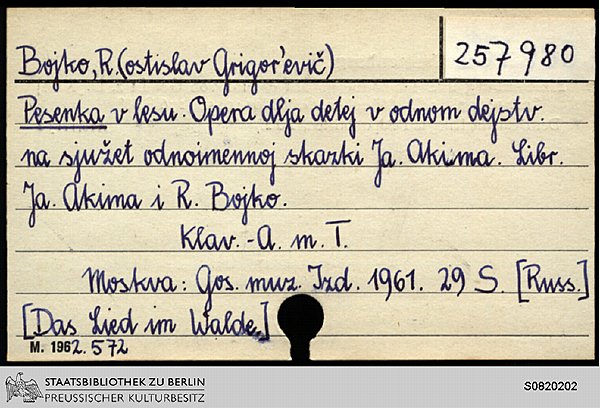 Bojko, R.(ostislav Grigor'evič)
257980
Pesenka v lesu. Opera dlja detej v odnom dejstv.
na sjužet odnoimennoj skazki Ja. Akima. Libr.
Ja. Akima i R. Bojko.
Klav.-A. m. T.
Moskva: Gos. muz. Izd. 1961. 29 S. [Russ.]
[Das Lied im Walde.]
M. 1962. 572
STAATSBIBLIOTHEK ZU BERLIN
PREUSSISCHER KULTURBESITZ
S0820202